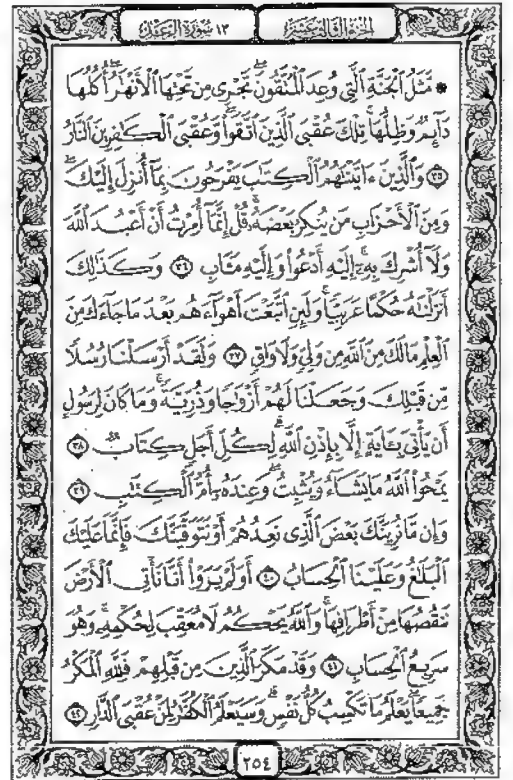 الجزء الثالث عشر
١٣ سورة الرعد
۞ مَّثَلُ الْجَنَّةِ الَّتِي وُعِدَ الْمُتَّقُونَ ۖ تَجْرِي مِن تَحْتِهَا الْأَنْهَٰرُ ۖ أُكُلُهَا
دَآئِمٌ وَظِلُّهَا ۚ تِلْكَ عُقْبَى الَّذِينَ اتَّقَوا۟ ۖ وَّعُقْبَى الْكَٰفِرِينَ النَّارُ
٣٥ وَالَّذِينَ ءَاتَيْنَٰهُمُ الْكِتَٰبَ يَفْرَحُونَ بِمَآ أُنزِلَ إِلَيْكَ ۖ
وَمِنَ الْأَحْزَابِ مَن يُنكِرُ بَعْضَهُ ۚ قُلْ إِنَّمَآ أُمِرْتُ أَنْ أَعْبُدَ اللَّهَ
وَلَآ أُشْرِكَ بِهِۦٓ ۚ إِلَيْهِ أَدْعُوا۟ وَإِلَيْهِ مَـَٔابِ ٣٦ وَكَذَٰلِكَ
أَنزَلْنَٰهُ حُكْمًا عَرَبِيًّا ۚ وَلَئِنِ اتَّبَعْتَ أَهْوَآءَهُم بَعْدَ مَا جَآءَكَ مِنَ
الْعِلْمِ مَا لَكَ مِنَ اللَّهِ مِن وَلِيٍّ وَلَا وَاقٍ ٣٧ وَلَقَدْ أَرْسَلْنَا رُسُلًا
مِّن قَبْلِكَ وَجَعَلْنَا لَهُمْ أَزْوَٰجًا وَذُرِّيَّةً ۚ وَمَا كَانَ لِرَسُولٍ
أَن يَأْتِيَ بِـَٔايَةٍ إِلَّا بِإِذْنِ اللَّهِ ۗ لِكُلِّ أَجَلٍ كِتَابٌ ٣٨
يَمْحُوا۟ اللَّهُ مَا يَشَآءُ وَيُثْبِتُ ۖ وَعِندَهُۥٓ أُمُّ الْكِتَٰبِ ٣٩
وَإِن مَّا نُرِيَنَّكَ بَعْضَ الَّذِي نَعِدُهُمْ أَوْ نَتَوَفَّيَنَّكَ فَإِنَّمَا عَلَيْكَ
الْبَلَٰغُ وَعَلَيْنَا الْحِسَابُ ٤٠ أَوَلَمْ يَرَوْا۟ أَنَّا نَأْتِي الْأَرْضَ
نَنقُصُهَا مِنْ أَطْرَافِهَا ۚ وَاللَّهُ يَحْكُمُ لَا مُعَقِّبَ لِحُكْمِهِۦ ۚ وَهُوَ
سَرِيعُ الْحِسَابِ ٤١ وَقَدْ مَكَرَ الَّذِينَ مِن قَبْلِهِمْ فَلِلَّهِ الْمَكْرُ
جَمِيعًا ۖ يَعْلَمُ مَا تَكْسِبُ كُلُّ نَفْسٍ ۗ وَسَيَعْلَمُ الْكُفَّٰرُ لِمَنْ عُقْبَى الدَّارِ ٤٢
٢٥٤